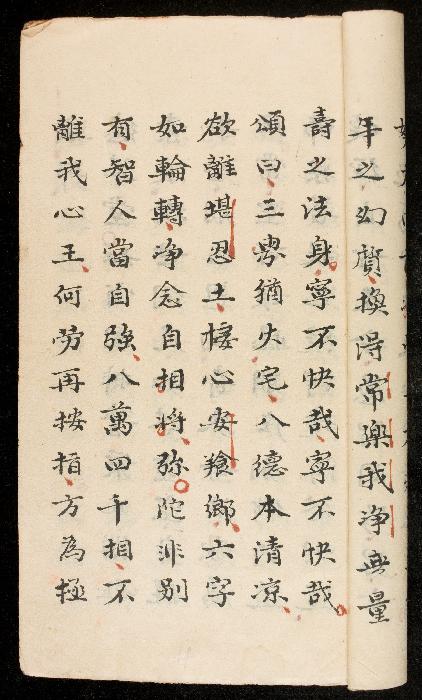 年之幻質換得常樂我净無量
壽之法身寧不快哉寧不快哉
頌曰三界猶火宅八德本清凉
欲離堪忍土棲心安養鄉六字
如輪轉净念自相將弥陀非别
有智人當自強八萬四千相不
離我心王何勞再按指方為極